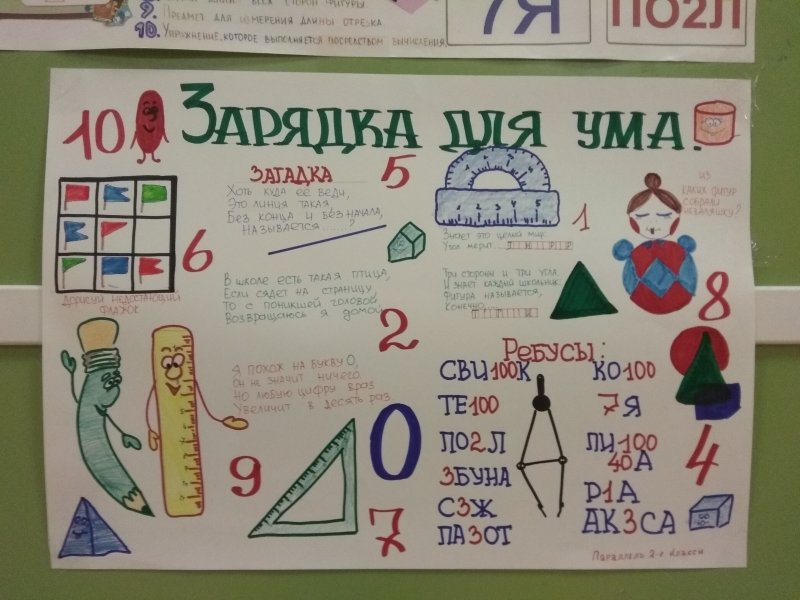 9. Предмет для измерения длины отрезка.
10. Упражнение, которое выполняется посредством вычисления.
7Я
ПО2Л
10
Зарядка для ума.
Загадка
Хоть куда её веди,
Это линия такая,
Без конца и без начала,
Называется......?
5
1 2 3 4 5
Знает это целый мир:
Угол мерит...
1
из
каких фигур
собрали
неваляшку?
6
Дорисуй недостающий
флажок
В школе есть такая птица,
Если сядет на страницу,
То с поникшей головой
Возвращаюсь я домой.
2
Три стороны и три угла.
И знает каждый школьник:
Фигура называется,
Конечно...
8
Я похож на букву О,
Он не значит ничего.
Но любую цифру враз
Увеличит в десять раз
0
9
7
Ребусы:
СВИ100К
ТЕ100
ПО2Л
3БУНА
С3Ж
ПА3ОТ
КО100
7Я
ПИ100
40А
Р1А
АК3СА
4
Параллель 2-е классы